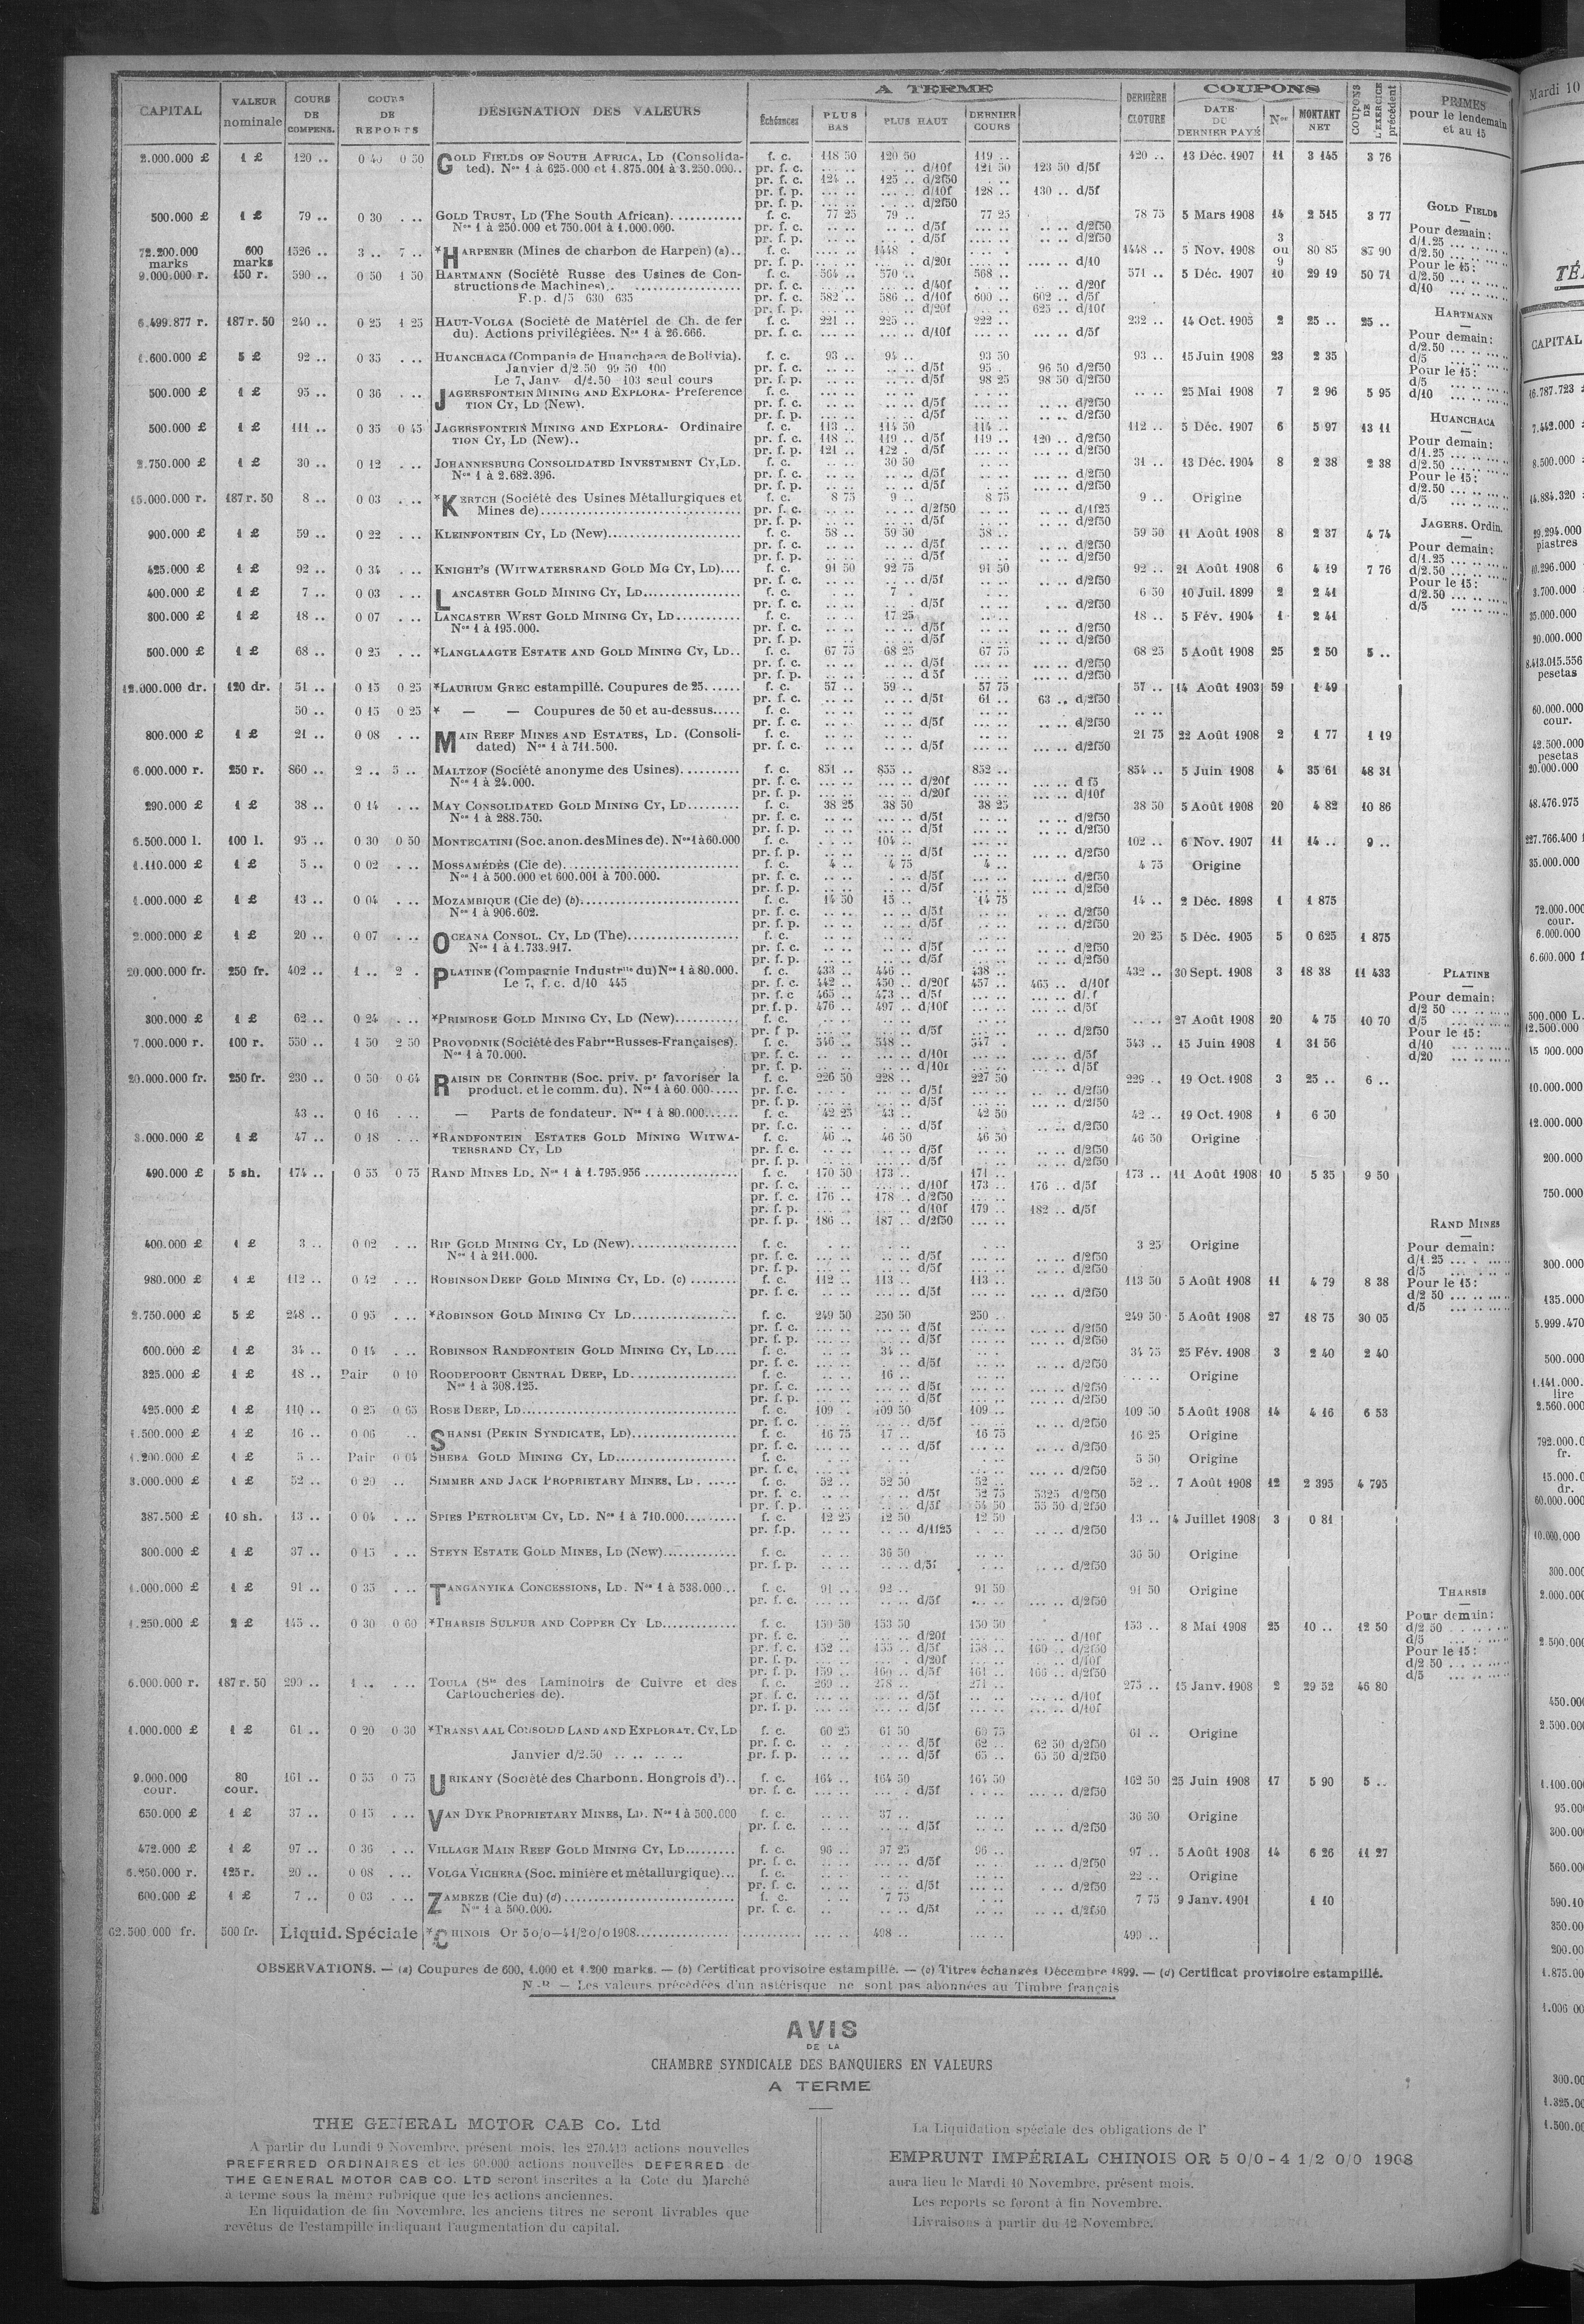 CAPITAL VALEUR nominale COURS DE COMPENS. COURS DE REPORTS DÉSIGNATION DES VALEURS A TERME Échéances PLUS BAS PLUS HAUT DERNIER COURS DERNIÈRE CLOTURE COUPONS DATE DU DERNIER PAYÉ Nos MONTANT NET COUPONS DE L'EXERCICE précédent PRIMES pour le lendemain et au 15
2.000.000 £ 1 £ 120 .. 0 40 0 50 GOLD FIELDS OF SOUTH AFRICA, LD (Consolida- f. c. 118 50 120 50 119 .. 120 .. 13 Déc. 1907 11 3 145 3 76
ted). Nos 1 à 625.000 et 1.875.001 à 3.250.000.. pr. f. c. d/10f 121 50 123 50 d/5f
pr. f. c. 124 .. 125 .. d/2f50
pr. f. p. d/10f 128 .. 130 .. d/5f
pr. f. p. d/2f50
500.000 £ 1 £ 79 .. 0 30 GOLD TRUST, LD (The South African) f. c. 77 25 79 .. 77 25 78 75 5 Mars 1908 14 2 515 3 77
Nos 1 à 250.000 et 750.001 à 1.000.000. pr. f. c. d/5f d/2f50
pr. f. p. d/5f d/2f50
72.200.000 marks 600 marks 1526 .. 3 .. 7 .. *HARPENER (Mines de charbon de Harpen) (a).. f. c. 1448 1448 .. 5 Nov. 1908 3 ou 9 80 85 85 90
pr. f. p. d/20f d/10
9.000.000 r. 150 r. 590 .. 0 50 1 50 HARTMANN (Société Russe des Usines de Con- f. c. 564 .. 570 .. 568 .. 571 .. 5 Déc. 1907 10 29 19 50 71
structions de Machines).. pr. f. c. d/40f d/20f
F.p. d/5 630 635 pr. f. c. 582 .. 586 .. d/10f 600 .. 602 .. d/5f
pr. f. p. d/20f 625 .. d/10f
6.499.877 r. 187 r. 50 240 .. 0 25 1 25 HAUT-VOLGA (Société de Matériel de Ch. de fer f. c. 221 .. 225 .. 222 .. 232 .. 14 Oct. 1905 2 25 .. 25 ..
du). Actions privilégiées. Nos 1 à 26.666. pr. f. c. d/10f d/5f
1.600.000 £ 5 £ 92 .. 0 35 HUANCHACA (Compania de Huanchaca de Bolivia). f. c. 93 .. 94 .. 93 50 93 .. 15 Juin 1908 23 2 35
Janvier d/2.50 99 50 100 pr. f. c. d/5f 95 . 96 50 d/2f50
Le 7, Janv d/2.50 103 seul cours pr. f. p. d/5f 98 25 98 50 d/2f50
500.000 £ 1 £ 95 .. 0 36 JAGERSFONTEIN MINING AND EXPLORA- Preference f. c. 25 Mai 1908 7 2 96 5 95
TION CY, LD (New). pr. f. c. d/5f d/2f50
pr. f. p. d/5f d/2f50
500.000 £ 1 £ 111 .. 0 35 0 45 JAGERSFONTEIN MINING AND EXPLORA- Ordinaire f. c. 113 .. 114 50 114 .. 112 .. 5 Déc. 1907 6 5 97 13 11
TION CY, LD (New).. pr. f. c. 118 .. 119 .. d/5f 119 .. 120 .. d/2f50
pr. f. p. 121 .. 122 . d/5f d/2f50
2.750.000 £ 1 £ 30 .. 0 12 JOHANNESBURG CONSOLIDATED INVESTMENT CY, LD. f. c. 30 50 31 .. 13 Déc. 1904 8 2 38 2 38
Nos 1 à 2.682.396. pr. f. c. d/5f d/2f50
pr. f. p. d/5f d/2f50
15.000.000 r. 187 r. 50 8 .. 0 03 *KERTCH (Société des Usines Métallurgiques et f. c. 8 75 9 .. 8 75 9 .. Origine
Mines de) pr. f. c. d/2f50 d/1f25
pr. f. p. d/5f d/2f50
900.000 £ 1 £ 59 .. 0 22 KLEINFONTEIN CY, LD (New) f. c. 58 .. 59 50 58 .. 59 50 11 Août 1908 8 2 37 4 74
pr. f. c. d/5f d/2f50
pr. f. p. d/5f d/2f50
425.000 £ 1 £ 92 .. 0 34 KNIGHT'S (WITWATERSRAND GOLD MG CY, LD).... f. c. 91 50 92 75 91 50 92 .. 21 Août 1908 6 4 19 7 76
pr. f. c. d/5f d/2f50
400.000 £ 1 £ 7 .. 0 03 LANCASTER GOLD MINING CY, LD f. c. 7 . 6 50 10 Juil. 1899 2 2 41
pr. f. c. d/5f d/2f50
300.000 £ 1 £ 18 .. 0 07 LANCASTER WEST GOLD MINING CY, LD f. c. 17 25 18 .. 5 Fév. 1904 1 2 41
Nos 1 à 195.000. pr. f. c. d/5f d/2f50
pr. f. p. d/5f d/2f50
500.000 £ 1 £ 68 .. 0 25 *LANGLAAGTE ESTATE AND GOLD MINING CY, LD.. f. c. 67 75 68 25 67 75 68 25 5 Août 1908 25 2 50 5 ..
pr. f. c. d/5f d/2f50
pr. f. p. d 5f d/2f50
12.000.000 dr. 120 dr. 51 .. 0 15 0 25 *LAURIUM GREC estampillé. Coupures de 25. f. c. 57 .. 59 .. 57 75 57 .. 14 Août 1903 59 1 49
pr. f. c. d/5f 61 .. 63 .. d/2f50
50 .. 0 15 0 25 * — — Coupures de 50 et au-dessus..... f. c.
pr. f. c. d/5f d/2f50
800.000 £ 1 £ 21 .. 0 08 MAIN REEF MINES AND ESTATES, LD. (Consoli- f. c. 21 75 22 Août 1908 2 1 77 1 19
dated) Nos 1 à 711.500. pr. f. c. d/5f d/2f50
6.000.000 r. 250 r. 860 .. 2 .. 5 .. MALTZOF (Société anonyme des Usines) f. c. 851 .. 855 .. 852 .. 854 .. 5 Juin 1908 4 35 61 48 31
Nos 1 à 24.000. pr. f. c. d/20f d f5
pr. f. p. d/20f d/10f
290.000 £ 1 £ 38 .. 0 14 MAY CONSOLIDATED GOLD MINING CY, LD f. c. 38 25 38 50 38 25 38 50 5 Août 1908 20 4 82 10 86
Nos 1 à 288.750. pr. f. c. d/5f d/2f50
pr. f. p. d/5f d/2f50
6.500.000 l. 100 l. 95 .. 0 30 0 50 MONTECATINI (Soc. anon. des Mines de). Nos 1 à 60.000 f. c. 104 .. 102 .. 6 Nov. 1907 11 14 .. 9 ..
pr. f. p. d/5f d/2f50
1.110.000 £ 1 £ 5 .. 0 02 MOSSAMÉDÈS (Cie de) f. c. 4 .. 4 75 4 .. 4 75 Origine
Nos 1 à 500.000 et 600.001 à 700.000. pr. f. c. d/5f d/2f50
pr. f. p. d/5f d/2f50
1.000.000 £ 1 £ 13 .. 0 04 MOZAMBIQUE (Cie de) (b) f. c. 14 50 15 .. 14 75 14 .. 2 Déc. 1898 1 1 875
Nos 1 à 906.602. pr. f. c. d/5f d/2f50
pr. f. p. d/5f d/2f50
2.000.000 £ 1 £ 20 .. 0 07 OCEANA CONSOL. CY, LD (The) f. c. 20 25 5 Déc. 1905 5 0 625 1 875
Nos 1 à 1.733.917. pr. f. c. d/5f d/2f50
pr. f. p. d/5f d/2f50
20.000.000 fr. 250 fr. 402 .. 1 .. 2 . PLATINE (Compagnie Industrlle du) Nos 1 à 80.000. f. c. 433 .. 446 .. 438 .. 432 .. 30 Sept. 1908 3 18 38 11 433
Le 7, f. c. d/10 445 pr. f. c. 442 .. 450 .. d/20f 457 .. 465 .. d/10f
pr. f. c 465 .. 473 .. d/5f
pr. f. p. 476 .. 497 .. d/10f d/5f
300.000 £ 1 £ 62 .. 0 24 *PRIMROSE GOLD MINING CY, LD (New) f. c. 27 Août 1908 20 4 75 10 70
pr. f p. d/5f d/2f50
7.000.000 r. 100 r. 550 .. 1 50 2 50 PROVODNIK (Société des Fabres Russes-Françaises). f. c. 546 .. 548 .. 547 . 543 .. 15 Juin 1908 1 31 56
Nos 1 à 70.000. pr. f. c. d/10f d/5f
pr. f. p. d/10f d/5f
20.000.000 fr. 250 fr. 230 .. 0 50 0 64 RAISIN DE CORINTHE (Soc. priv. pr favoriser la f. c. 226 50 228 .. 227 50 229 .. 19 Oct. 1908 3 25 .. 6 ..
product. et le comm. du). Nos 1 à 60.000 pr. f. c. d/5f d/2f50
pr. f. p. d/5f d/2f50
43 .. 0 16 — Parts de fondateur. Nos 1 à 80.000 f. c. 42 25 43 .. 42 50 42 .. 19 Oct. 1908 1 6 50
pr. f. c. d/5f d/2f50
3.000.000 £ 1 £ 47 .. 0 18 *RANDFONTEIN ESTATES GOLD MINING WITWA- f. c. 46 .. 46 50 46 50 46 50 Origine
TERSRAND CY, LD pr. f. c. d/5f d/2f50
pr. f. p. d/5f d/2f50
490.000 £ 5 sh. 174 .. 0 55 0 75 RAND MINES LD. Nos 1 à 1.795.956 f. c. 170 50 173 .. 171 .. 173 .. 11 Août 1908 10 5 35 9 50
pr. f. c. d/10f 173 .. 176 .. d/5f
pr. f. c. 176 .. 178 .. d/2f50
pr. f. p. d/10f 179 .. 182 .. d/5f
pr. f. p. 186 .. 187 .. d/2f50
400.000 £ 1 £ 3 .. 0 02 RIP GOLD MINING CY, LD (New) f. c. 3 25 Origine
Nos 1 à 211.000. pr. f. c. d/5f d/2f50
pr. f. p. d/5f d/2f50
980.000 £ 1 £ 112 .. 0 42 ROBINSON DEEP GOLD MINING CY, LD. (c) f. c. 112 .. 113 .. 113 .. 113 50 5 Août 1908 11 4 79 8 38
pr. f. c. d/5f d/2f50
2.750.000 £ 5 £ 248 .. 0 95 *ROBINSON GOLD MINING CY LD f. c. 249 50 250 50 250 .. 249 50 5 Août 1908 27 18 75 30 05
pr. f. c. d/5f d/2f50
pr. f. p. d/5f d/2f50
600.000 £ 1 £ 34 .. 0 14 ROBINSON RANDFONTEIN GOLD MINING CY, LD.... f. c. 34 .. 34 75 25 Fév. 1908 3 2 40 2 40
pr. f. c. d/5f d/2f50
325.000 £ 1 £ 18 .. Pair 0 10 ROODEPOORT CENTRAL DEEP, LD f. c. 16 .. Origine
Nos 1 à 308.125. pr. f. c. d/5f d/2f50
pr. f. p. d/5f d/2f50
425.000 £ 1 £ 110 .. 0 25 0 65 ROSE DEEP, LD f. c. 109 . 109 50 109 .. 109 50 5 Août 1908 14 4 16 6 53
pr. f. c. d/5f d/2f50
1.500.000 £ 1 £ 16 .. 0 06 SHANSI (PEKIN SYNDICATE, LD) f. c. 16 75 17 .. 16 75 16 25 Origine
pr. f. c. d/5f d/2f50
1.200.000 £ 1 £ 5 .. Pair 0 04 SHEBA GOLD MINING CY, LD f. c. 5 50 Origine
pr. f. c. d/2f50
3.000.000 £ 1 £ 52 .. 0 20 SIMMER AND JACK PROPRIETARY MINES, LD f. c. 52 .. 52 50 52 .. 52 .. 7 Août 1908 12 2 395 4 795
pr. f. c. d/5f 52 75 5325 d/2f50
pr. f. p. d/5f 54 50 55 50 d/2f50
387.500 £ 10 sh. 13 .. 0 04 SPIES PETROLEUM CY, LD. Nos 1 à 710.000 f. c. 12 25 12 50 12 50 13 .. 4 Juillet 1908 3 0 81
pr. f.p. d/1f25 d/2f50
300.000 £ 1 £ 37 .. 0 15 STEYN ESTATE GOLD MINES, LD (New) f. c. 36 50 36 50 Origine
pr. f. p. d/5f d/2f50
1.000.000 £ 1 £ 91 .. 0 35 TANGANYIKA CONCESSIONS, LD. Nos 1 à 538.000 .. f. c. 91 .. 92 .. 91 50 91 50 Origine
pr. f. c. d/5f d/2f50
1.250.000 £ 2 £ 145 .. 0 30 0 60 *THARSIS SULFUR AND COPPER CY LD f. c. 150 50 153 50 150 50 153 .. 8 Mai 1908 25 10 .. 12 50
pr. f. c. d/20f d/10f
pr. f. c. 152 .. 155 .. d/5f 158 .. 160 .. d/2f50
pr. f. p. d/20f d/10f
pr. f. p. 159 .. 160 .. d/5f 161 .. 166 .. d/2f50
6.000.000 r. 187 r. 50 290 .. 1 .. TOULA (Sté des Laminoirs de Cuivre et des f. c. 269 .. 278 .. 271 .. 275 .. 15 Janv. 1908 2 29 52 46 80
Cartoucheries de). pr. f. c. d/5f d/10f
pr. f. p. d/5f d/10f
1.000.000 £ 1 £ 61 .. 0 20 0 30 *TRANSVAAL CONSOLID LAND AND EXPLORAT. CY, LD f. c. 60 25 61 50 60 75 61 .. Origine
pr. f. c. d/5f 62 .. 62 50 d/2f50
Janvier d/2.50 .. .. .. .. pr. f. p. d/5f 65 .. 65 50 d/2f50
9.000.000 cour. 80 cour. 161 .. 0 55 0 75 URIKANY (Société des Charbonn. Hongrois d').. f. c. 164 .. 164 50 164 50 162 50 25 Juin 1908 17 5 90 5 ..
pr. f. c. d/5f d/2f50
650.000 £ 1 £ 37 .. 0 15 VAN DYK PROPRIETARY MINES, LD. Nos 1 à 500.000 f. c. 37 .. 36 50 Origine
pr. f. c. d/5f d/2f50
472.000 £ 1 £ 97 .. 0 36 VILLAGE MAIN REEF GOLD MINING CY, LD f. c. 96 .. 97 25 96 .. 97 .. 5 Août 1908 14 6 26 11 27
pr. f. c. d/5f d/2f50
6.250.000 r. 125 r. 20 .. 0 08 VOLGA VICHERA (Soc. minière et métallurgique)... f. c. 22 .. Origine
pr. f. c. d/5f d/2f50
600.000 £ 1 £ 7 .. 0 03 ZAMBEZE (Cie du) (d) f. c. 7 75 7 75 9 Janv. 1901 1 10
Nos 1 à 500.000. pr. f. c. d/5f d/2f50
62.500.000 fr. 500 fr. Liquid. Spéciale *CHINOIS Or 5 o/o—4 1/2 o/o 1908 498 .. 499 ..
GOLD FIELDS
Pour demain:
d/1.25
d/2.50
Pour le 15:
d/2.50
d/10
HARTMANN
Pour demain:
d/2.50
d/5
Pour le 15:
d/5
d/10
HUANCHACA
Pour demain:
d/1.25
d/2.50
Pour le 15:
d/2.50
d/5
JAGERS. Ordin.
Pour demain:
d/1.25
d/2.50
Pour le 15:
d/2.50
d/5
PLATINE
Pour demain:
d/2 50
d/5
Pour le 15:
d/10
d/20
RAND MINES
Pour demain:
d/1.25
d/5
Pour le 15:
d/2 50
d/5
THARSIS
Pour demain:
d/2 50
d/5
Pour le 15:
d/2 50
d/5
OBSERVATIONS. — (a) Coupures de 600, 1.000 et 1.200 marks. — (b) Certificat provisoire estampillé. — (c) Titres échangés Décembre 1899. — (d) Certificat provisoire estampillé.
N.-B. — Les valeurs précédées d'un astérisque ne sont pas abonnées au Timbre français
AVIS
DE LA
CHAMBRE SYNDICALE DES BANQUIERS EN VALEURS
A TERME
THE GENERAL MOTOR CAB Co. Ltd
A partir du Lundi 9 Novembre, présent mois, les 270.413 actions nouvelles
PREFERRED ORDINAIRES et les 60.000 actions nouvelles DEFERRED de
THE GENERAL MOTOR CAB CO. LTD seront inscrites a la Cote du Marché
à terme sous la même rubrique que les actions anciennes.
En liquidation de fin Novembre, les anciens titres ne seront livrables que
revêtus de l'estampille indiquant l'augmentation du capital.
La Liquidation spéciale des obligations de l'
EMPRUNT IMPÉRIAL CHINOIS OR 5 0/0 - 4 1/2 0/0 1908
aura lieu le Mardi 10 Novembre, présent mois.
Les reports se feront à fin Novembre.
Livraisons à partir du 12 Novembre.
Mardi 10
CAPITAL
16.787.723
7.442.000
8.500.000
14.884.320
29.294.000
piastres
10.296.000
3.700.000
35.000.000
20.000.000
8.413.015.556
pesetas
60.000.000
cour.
42.500.000
pesetas
20.000.000
48.476.975
227.766.400
35.000.000
72.000.000
cour.
6.000.000
6.600.000
500.000 L.
12.500.000
15 000.000
10.000.000
12.000.000
200.000
750.000
300.000
435.000
5.999.470
500.000
1.141.000
lire
2.560.000
792.000
fr.
dr.
60.000.000
10.000.000
300.000
2.000.000
2.500.000